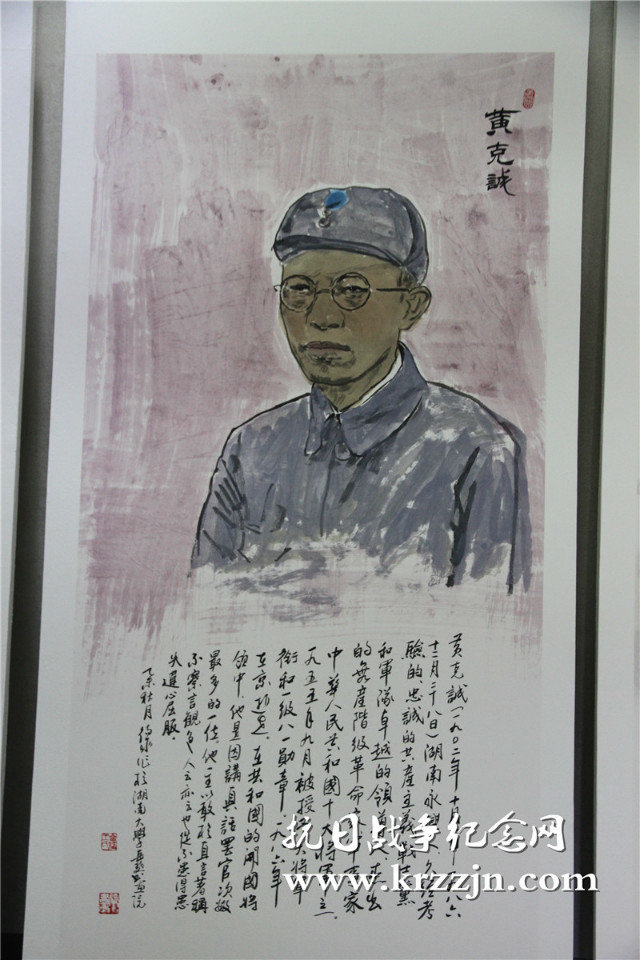 黄克誠
黄克誠(一九〇二年十月 八六
十二月二十八日)湖南永 久 考
驗的、忠誠的共産主義戰 黨
和軍隊卓越的領 出
的無産階級革命 家
中華人民共和國十大將軍之一
一九五五年九月被授 大將軍
銜和一級八一勛章 一九八六年
在京逝世。在共和國的開國將
領中,他是因講真話罷官次數
最多的一位,他一生以敢於直言著稱
不察言觀色人云亦云也從不患得患
失違心屈服。
乙未秋月 作於湖南大學
抗日战争纪念网
www.krzzjn.com